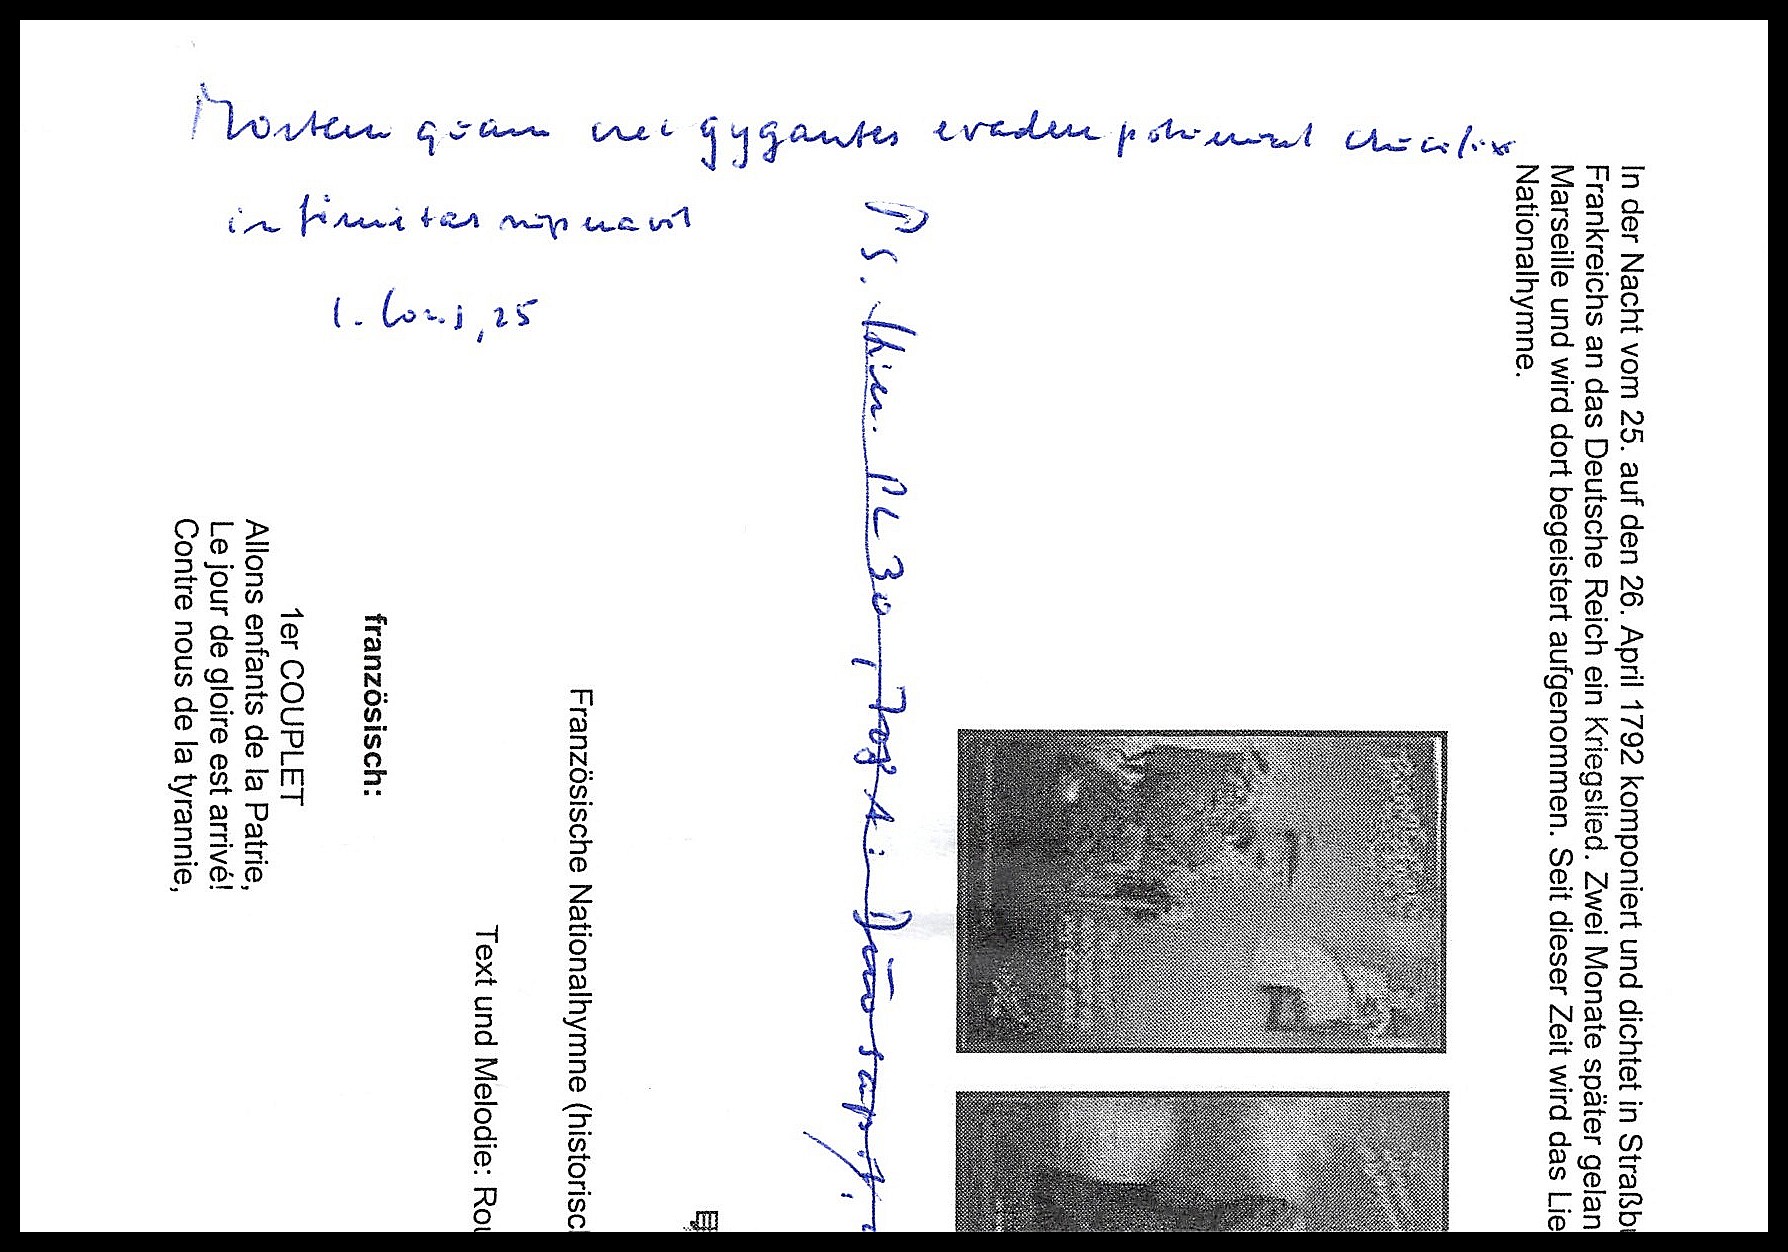 Mortem quam nec gygantes evadere potuerunt
infirmitas superavit
1. Cor. 1, 25
Ps. Hier. PL 30,
In der Nacht vom 25. auf den 26. April 1792 komponiert und dichtet in Straßbu
Frankreichs an das Deutsche Reich ein Kriegslied. Zwei Monate später gelan
Marseille und wird dort begeistert aufgenommen. Seit dieser Zeit wird das Lie
Nationalhymne.
Französische Nationalhymne (historisc
Text und Melodie: Rou
französisch:
1er COUPLET
Allons enfants de la Patrie,
Le jour de gloire est arrivé!
Contre nous de la tyrannie,